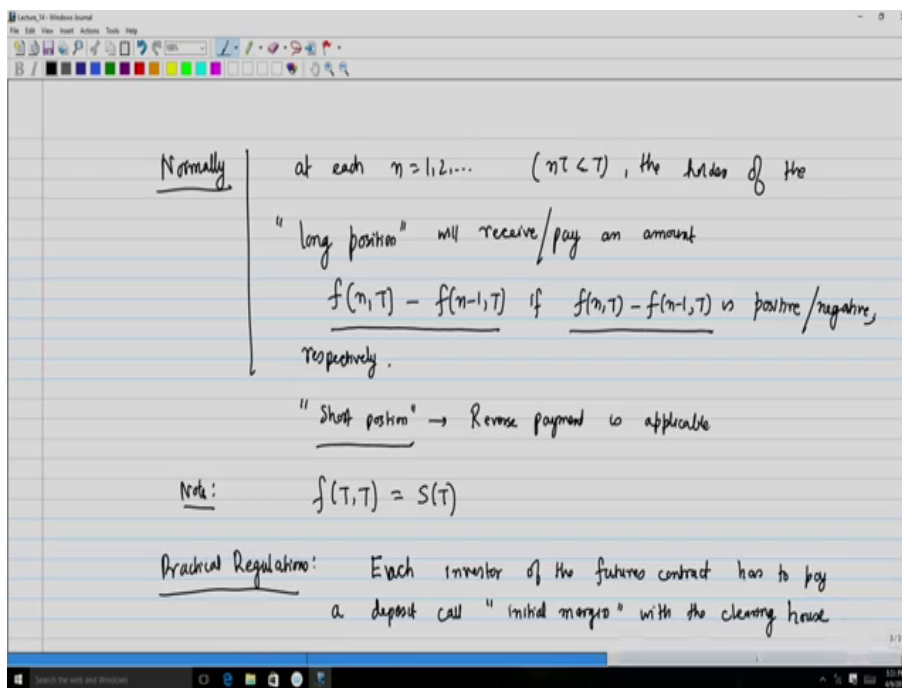 Lecture_14 - Windows Journal
File Edit View Insert Actions Tools Help
B I
Normally at each n = 1, 2, ... (nτ < T), the holder of the
"long position" will receive/pay an amount
f(n,T) - f(n-1,T) if f(n,T) - f(n-1,T) is positive/negative,
respectively.
"Short position" → Reverse payment is applicable
Note: f(T,T) = S(T)
Practical Regulations: Each investor of the futures contract has to pay
a deposit call "initial margin" with the clearing house
Search the web and Windows